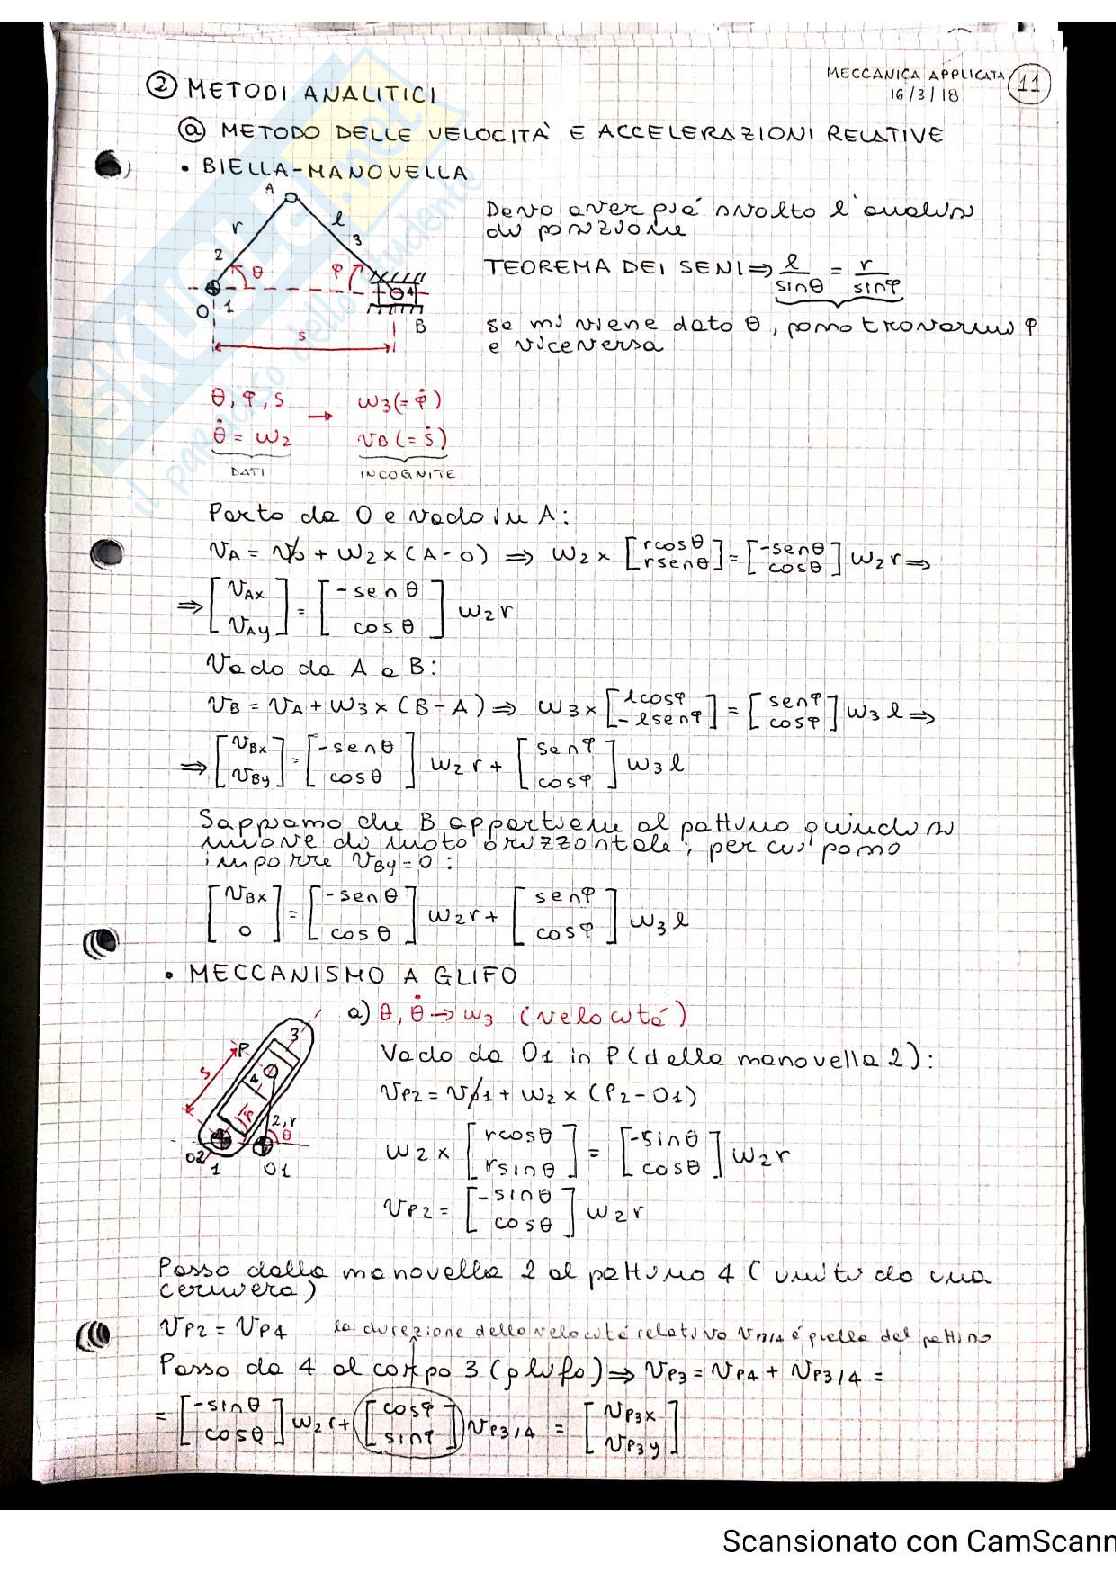 MECCANICA APPLICATA
16/3/18
11
② METODI ANALITICI
ⓐ METODO DELLE VELOCITÀ E ACCELERAZIONI RELATIVE
• BIELLA-MANOVELLA
A
r
l
2
3
θ
φ
4
O
1
B
s
Devo aver già svolto l'analisi
di posizione
TEOREMA DEI SENI ⇒ l/sinθ = r/sinφ
se mi viene dato θ, posso trovarmi φ
e viceversa
θ, φ, s → ω3(=φ̇)
θ̇ = ω2 vB(=ṡ)
DATI INCOGNITE
Parto da O e vado in A:
vA = vo + ω2 × (A-O) ⇒ ω2 × [rcosθ rsenθ] = [-senθ cosθ] ω2r ⇒
⇒ [vAx vAy] = [-senθ cosθ] ω2r
Vado da A a B:
vB = vA + ω3 × (B-A) ⇒ ω3 × [lcosφ -lsenφ] = [senφ cosφ] ω3l ⇒
⇒ [vBx vBy] = [-senθ cosθ] ω2r + [senφ cosφ] ω3l
Sappiamo che B appartiene al pattino quindi si
muove di moto orizzontale, per cui posso
imporre vBy=0:
[vBx 0] = [-senθ cosθ] ω2r + [senφ cosφ] ω3l
• MECCANISMO A GLIFO
a) θ, θ̇ → ω3 (velocità)
3
P
s
4
2,r
θ
O2
1
O1
Vado da O1 in P (della manovella 2):
vP2 = vO1 + ω2 × (P2-O1)
ω2 × [rcosθ rsinθ] = [-sinθ cosθ] ω2r
vP2 = [-sinθ cosθ] ω2r
Passo dalla manovella 2 al pattino 4 (uniti da una
cerniera)
vP2 = vP4 la direzione della velocità relativa v è quella del pattino
Passo da 4 al corpo 3 (glifo) ⇒ vP3 = vP4 + vP3/4 =
= [-sinθ cosθ] ω2r + [cosφ sinφ] vP3/4 = [vP3x vP3y]
Scansionato con CamScann